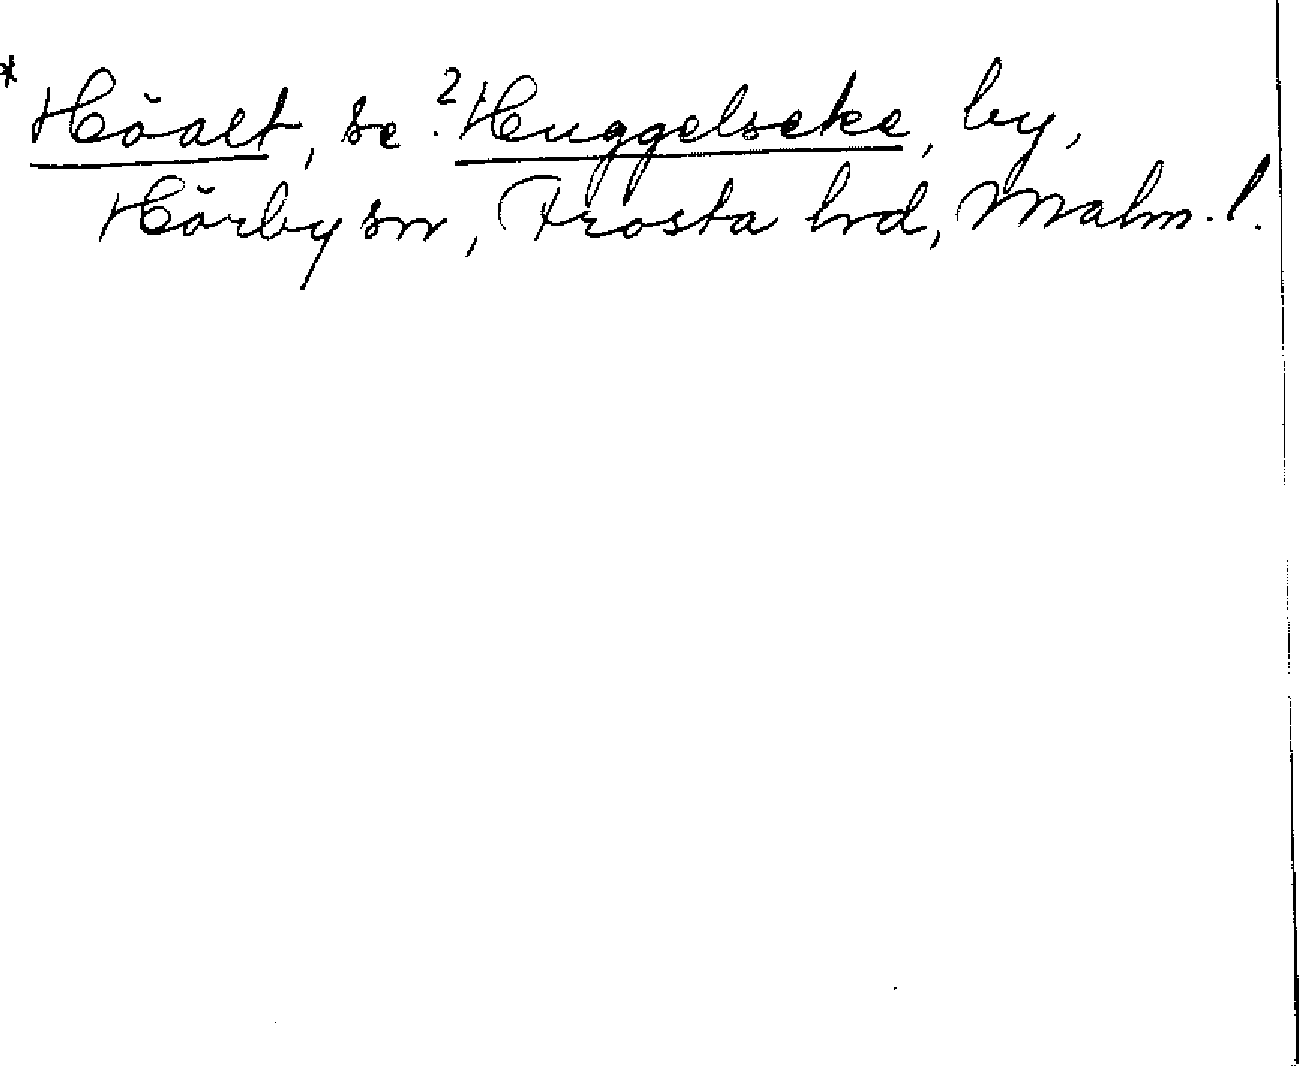 * Höalt, se ? Huggelseke, by,
Hörby sn, Frosta hrd, Malm. l.